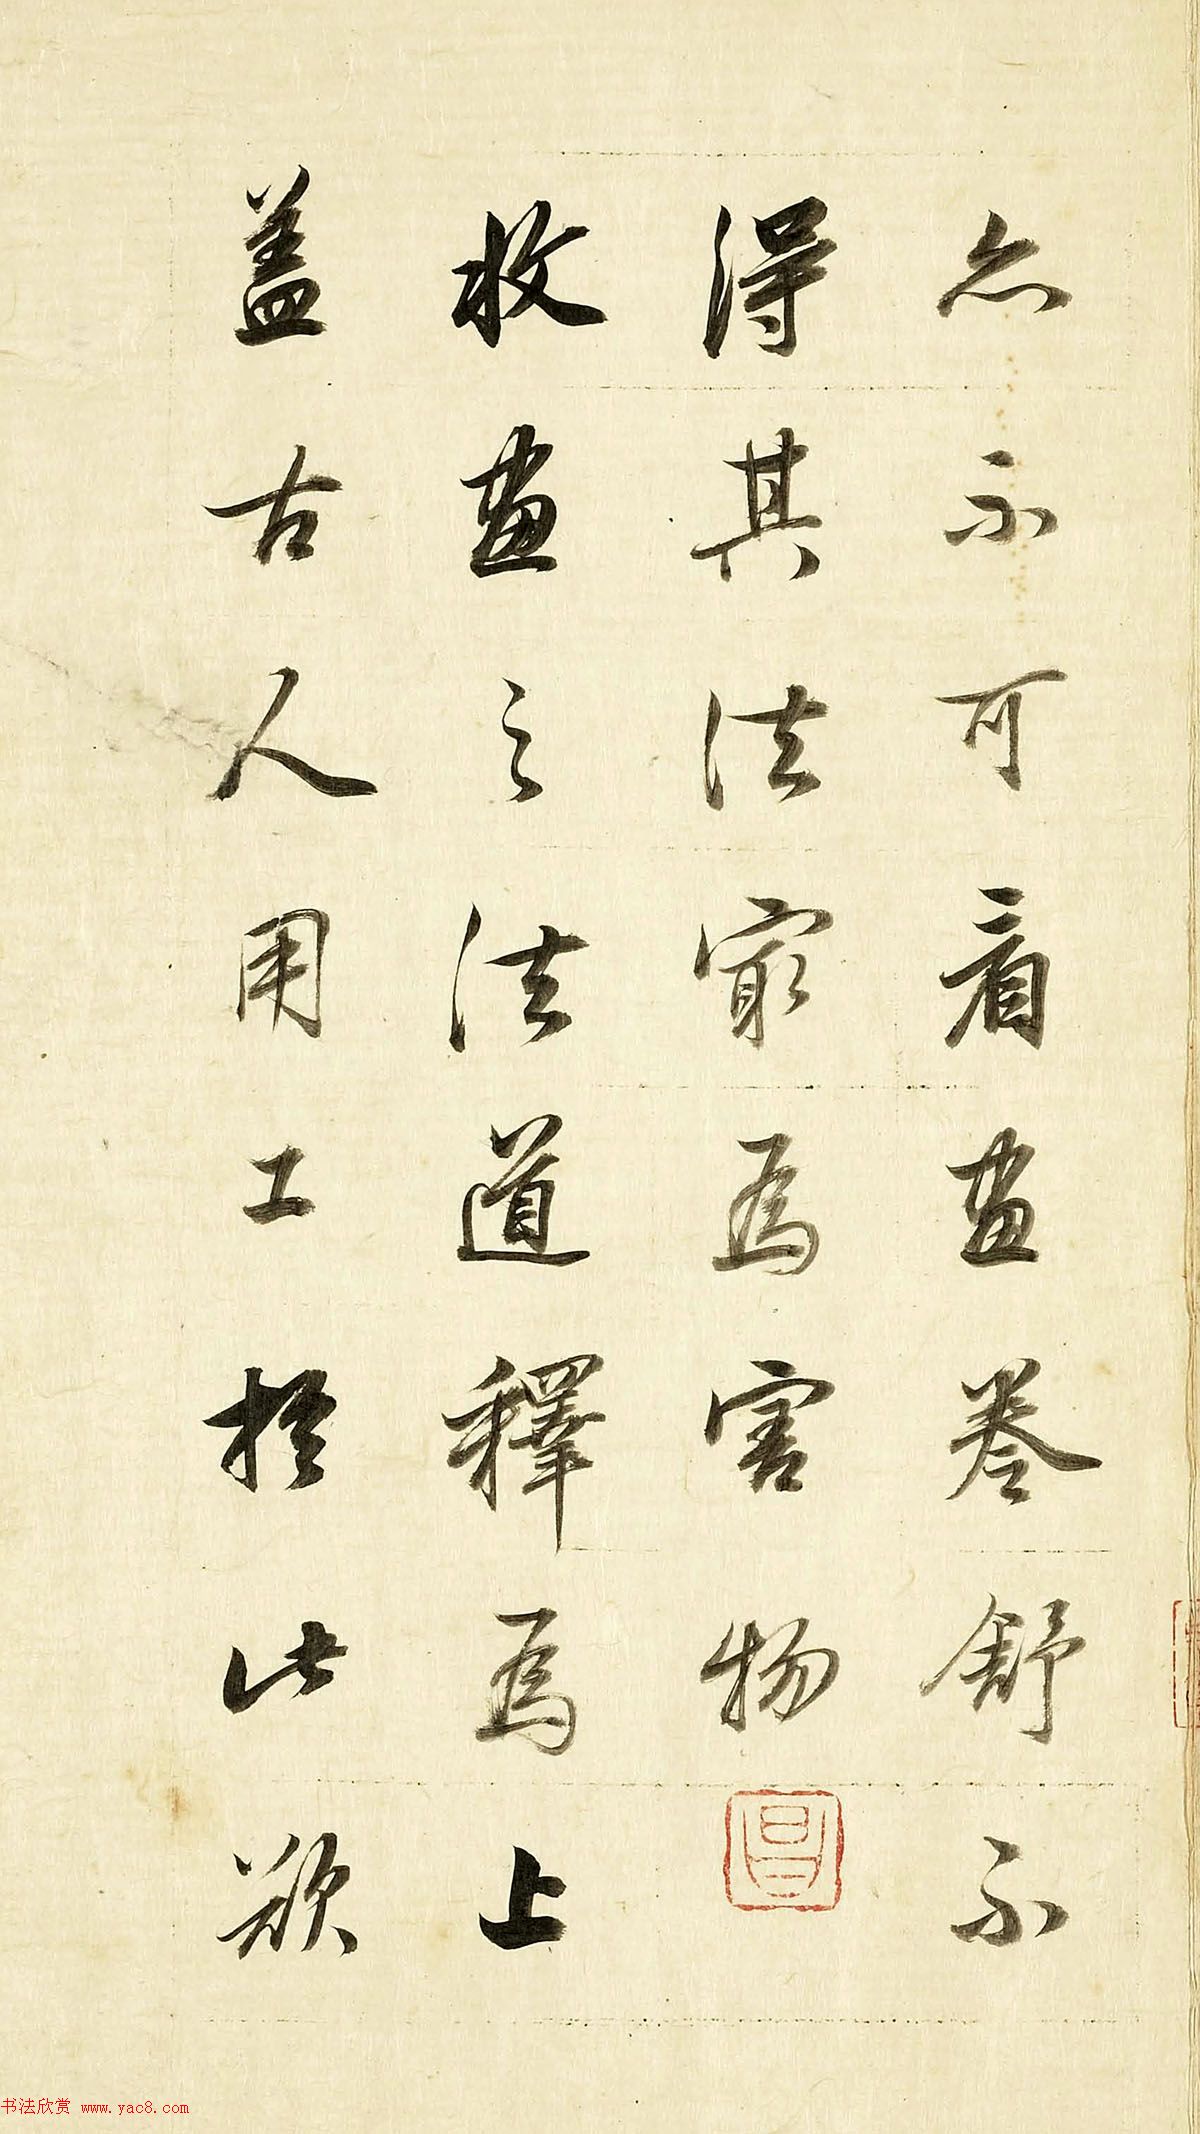 亦不可看畫卷舒不
得其法最為害物
收畫之法道釋為上
蓋古人用工於此欲
书法欣赏 www.yac8.com